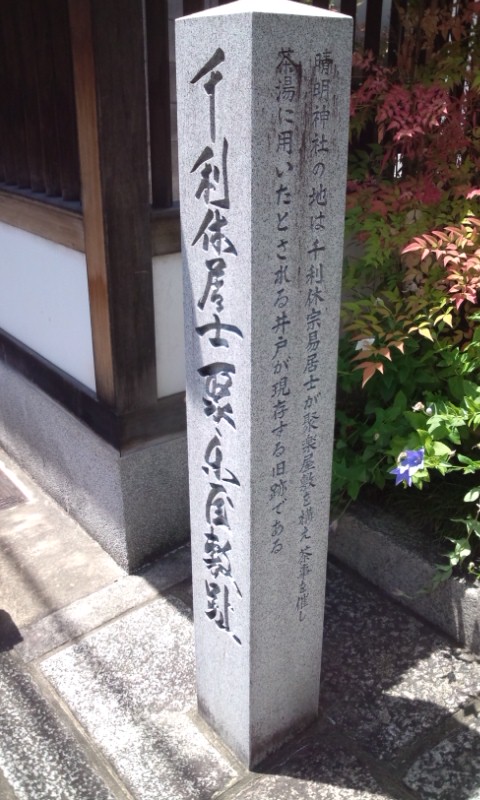 千利休居士聚楽屋敷趾
晴明神社の地は千利休宗易居士が聚楽屋敷を構え茶事を催し
茶湯に用いたとされる井戸が現存する旧跡である